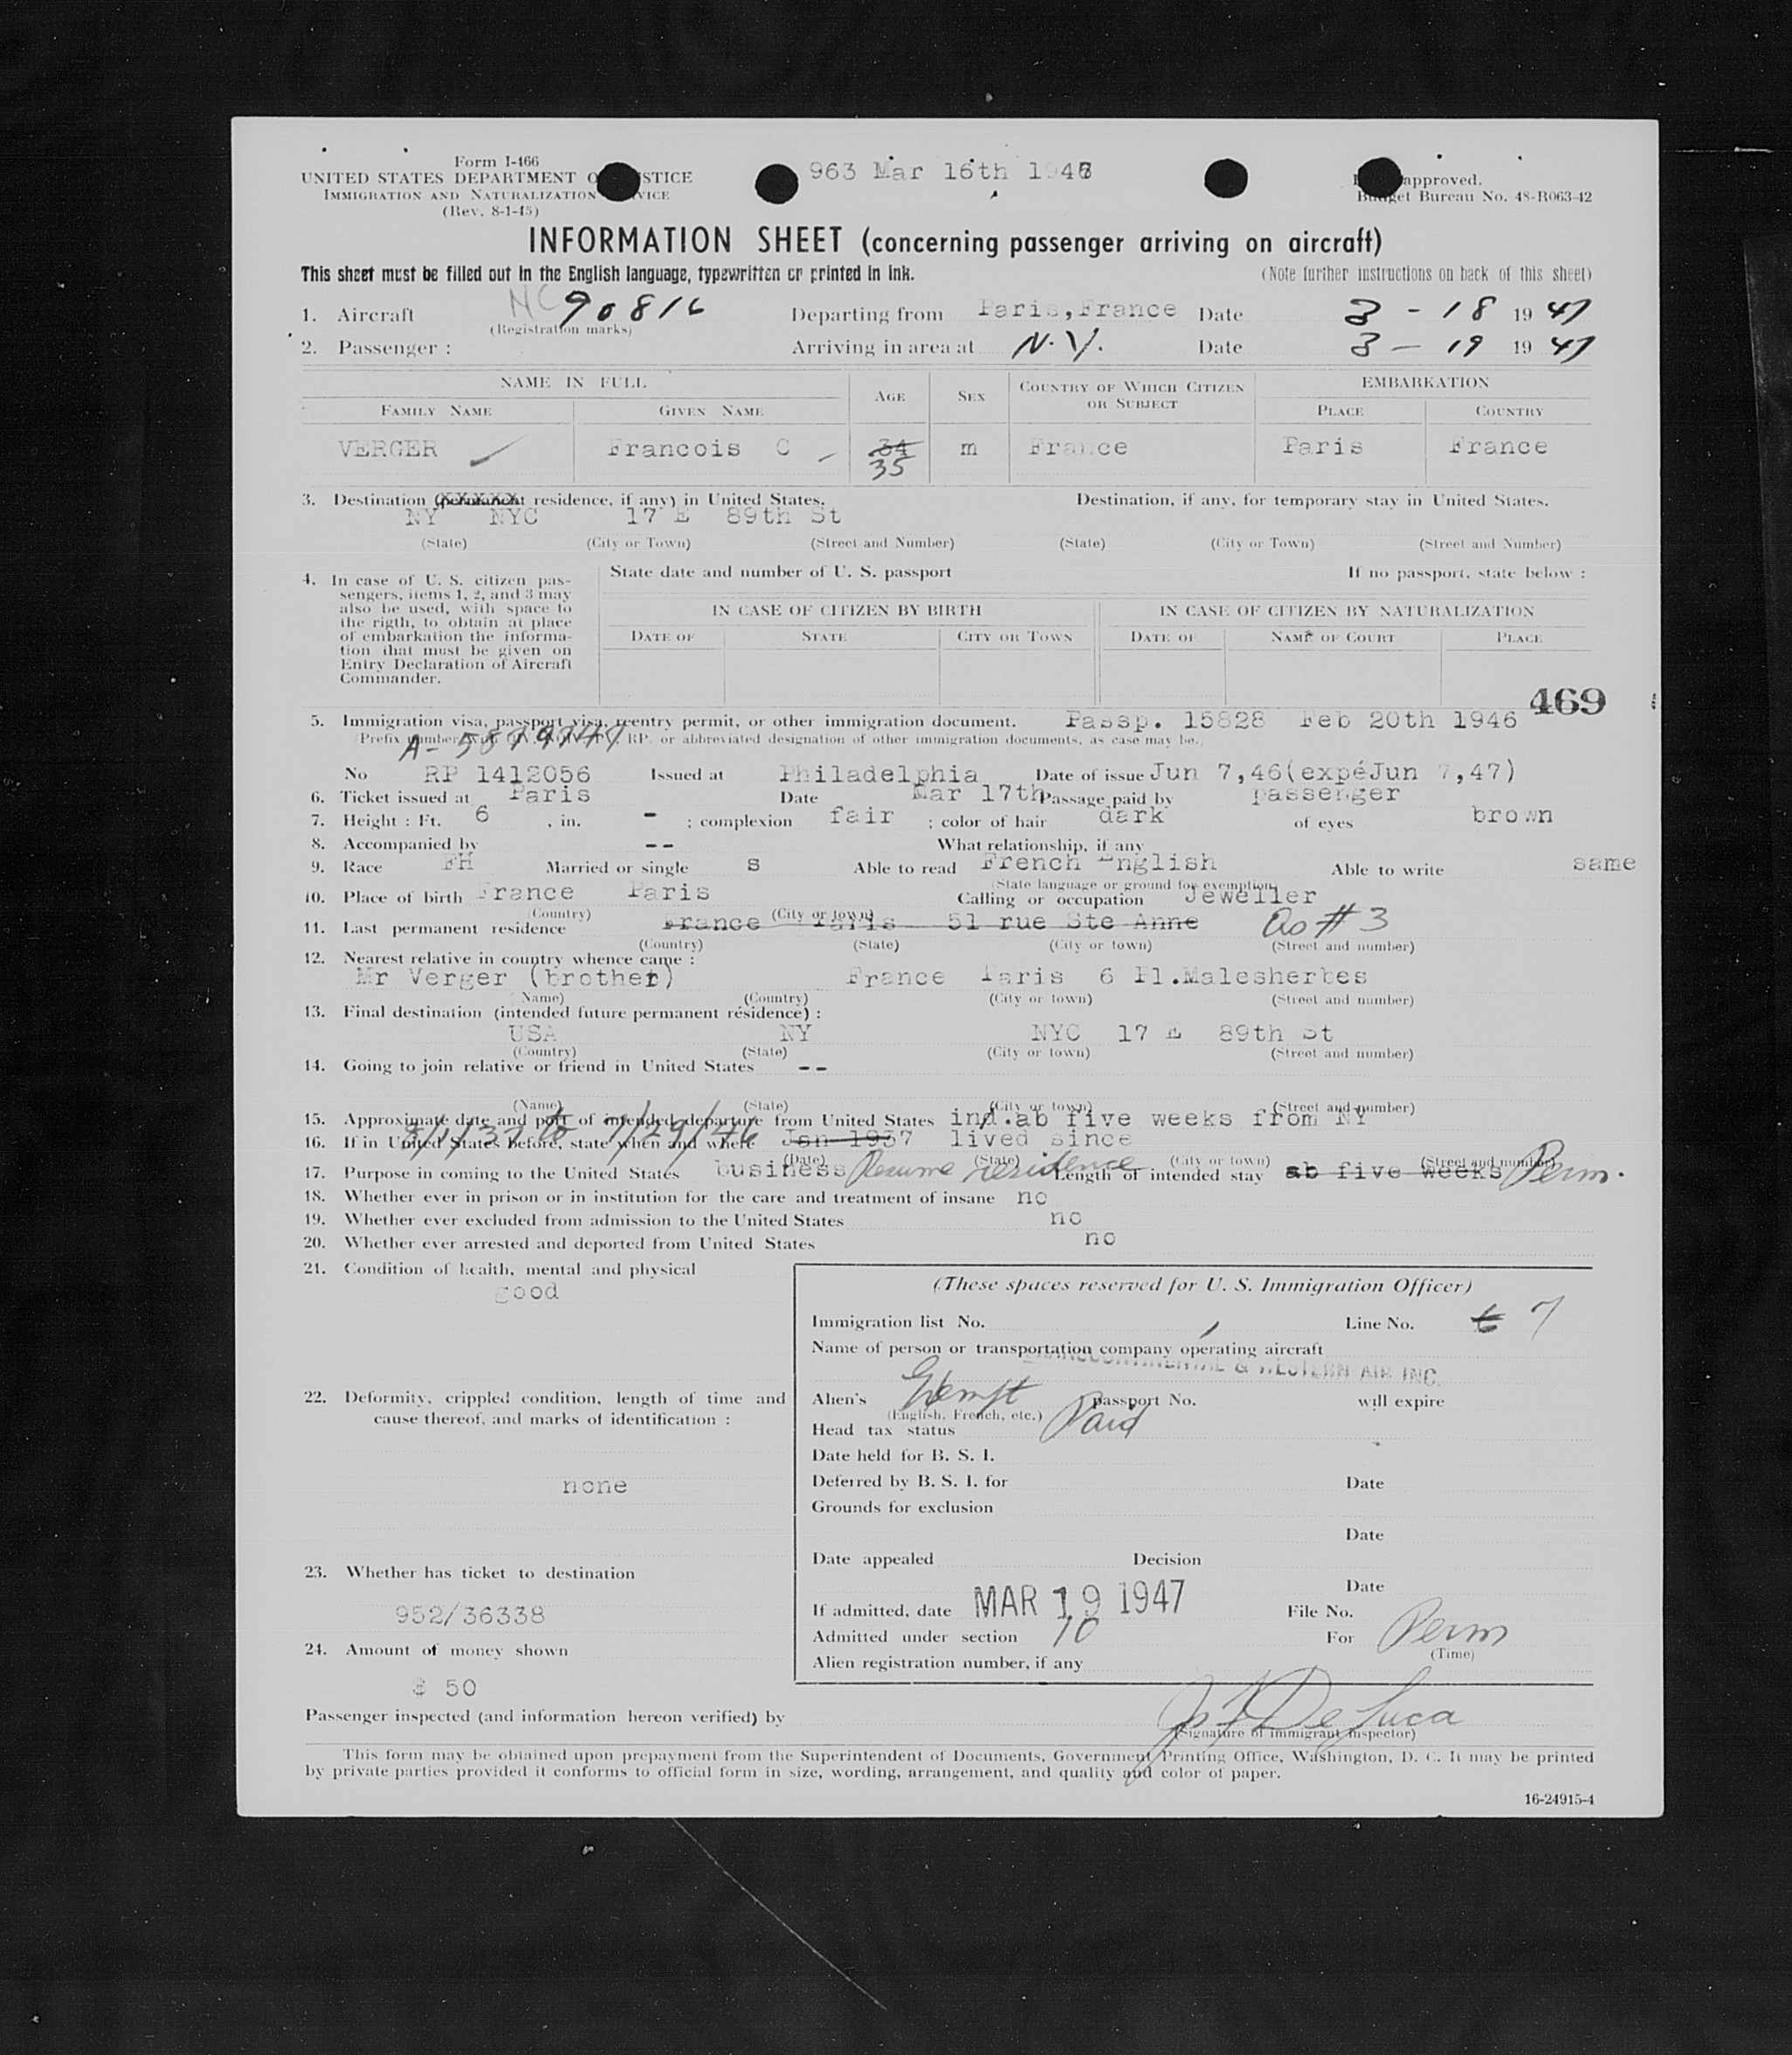 Form I-466
UNITED STATES DEPARTMENT O STICE
IMMIGRATION AND NATURALIZATION VICE
(Rev. 8-1-45)
963 Mar 16th 1947
approved.
Budget Bureau No. 48-R063-42
INFORMATION SHEET (concerning passenger arriving on aircraft)
This sheet must be filled out in the English language, typewritten or printed in ink. (Note further instructions on back of this sheet)
1. Aircraft NC 90816 Departing from Paris,France Date 3 - 18 19 47
(Registration marks)
2. Passenger : Arriving in area at N.Y. Date 3 — 19 19 47
NAME IN FULL AGE SEX COUNTRY OF WHICH CITIZEN OR SUBJECT EMBARKATION
FAMILY NAME GIVEN NAME PLACE COUNTRY
VERGER Francois C 34 m France Paris France
35
3. Destination (permanent residence, if any) in United States. Destination, if any, for temporary stay in United States.
NY NYC 17 E 89th St
(State) (City or Town) (Street and Number) (State) (City or Town) (Street and Number)
4. In case of U. S. citizen pas-
sengers, items 1, 2, and 3 may
also be used, with space to
the rigth, to obtain at place
of embarkation the informa-
tion that must be given on
Entry Declaration of Aircraft
Commander.
State date and number of U. S. passport If no passport, state below :
IN CASE OF CITIZEN BY BIRTH IN CASE OF CITIZEN BY NATURALIZATION
DATE OF STATE CITY OR TOWN DATE OF NAME OF COURT PLACE
469
5. Immigration visa, passport visa, reentry permit, or other immigration document. Passp. 15828 Feb 20th 1946
Prefix number RP. or abbreviated designation of other immigration documents, as case may be.
A- 5879747
No RP 1412056 Issued at Philadelphia Date of issue Jun 7,46(expéJun 7,47)
6. Ticket issued at Paris Date Mar 17th Passage paid by passenger
7. Height : Ft. 6 , in. - ; complexion fair ; color of hair dark of eyes brown
8. Accompanied by -- What relationship, if any
9. Race FH Married or single s Able to read French English Able to write same
(State language or ground for exemption)
10. Place of birth France Paris Calling or occupation Jeweller
(Country) (City or town)
11. Last permanent residence France Paris 51 rue Ste Anne as # 3
(Country) (State) (City or town) (Street and number)
12. Nearest relative in country whence came :
Mr Verger (brother) France Paris 6 Pl.Malesherbes
(Name) (Country) (City or town) (Street and number)
13. Final destination (intended future permanent résidence) :
USA NY NYC 17 E 89th St
(Country) (State) (City or town) (Street and number)
14. Going to join relative or friend in United States --
(Name) (State) (City or town) (Street and number)
15. Approximate date and port of intended departure from United States ind.ab five weeks from NY
16. If in United States before, state when and where 8/1/37 to 7/29/46 Jan 1937 lived since
(Date) (State) (City or town) (Street and number)
17. Purpose in coming to the United States business Resume residence Length of intended stay ab five weeks Perm.
18. Whether ever in prison or in institution for the care and treatment of insane no
19. Whether ever excluded from admission to the United States no
20. Whether ever arrested and deported from United States no
21. Condition of health, mental and physical
good
22. Deformity, crippled condition, length of time and
cause thereof, and marks of identification :
none
23. Whether has ticket to destination
952/36338
24. Amount of money shown
$ 50
(These spaces reserved for U. S. Immigration Officer)
Immigration list No. Line No. 6 7
Name of person or transportation company operating aircraft
TRANSCONTINENTAL & WESTERN AIR INC.
Alien's Exempt passport No. will expire
(English, French, etc.)
Head tax status Paid
Date held for B. S. I.
Deferred by B. S. I. for Date
Grounds for exclusion
Date
Date appealed Decision
Date
If admitted, date MAR 19 1947 File No.
Admitted under section 10 For Perm
(Time)
Alien registration number, if any
Passenger inspected (and information hereon verified) by De Luca
(Signature of immigrant inspector)
This form may be obtained upon prepayment from the Superintendent of Documents, Government Printing Office, Washington, D. C. It may be printed
by private parties provided it conforms to official form in size, wording, arrangement, and quality and color of paper.
16-24915-4